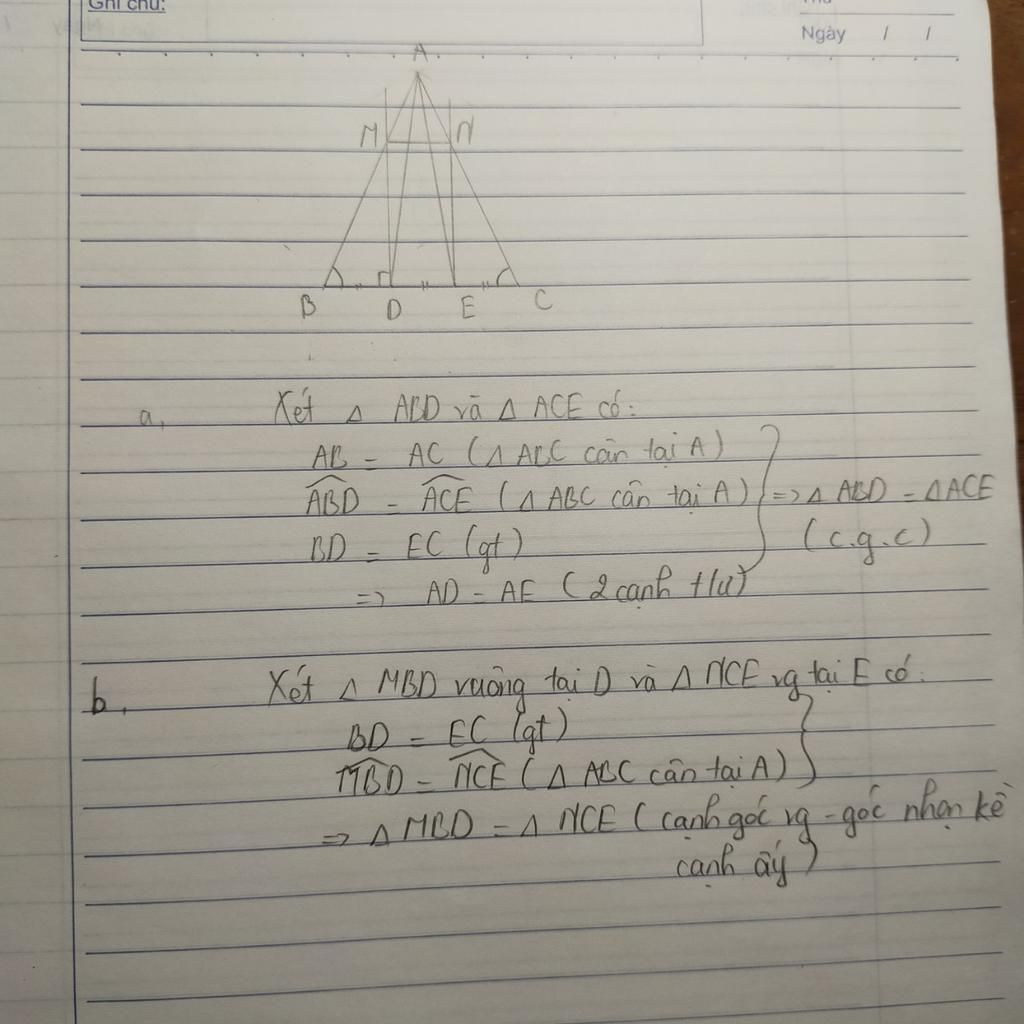 Ghi chú:
Ngày / /
A
M N
B D E C
a, Xét Δ ABD và Δ ACE có:
AB = AC (Δ ABC cân tại A)
ABD = ACE (Δ ABC cân tại A) => Δ ABD = Δ ACE
BD = EC (gt) (c.g.c)
=> AD = AE (2 cạnh t/ư)
b, Xét Δ MBD vuông tại D và Δ NCE vg tại E có:
BD = EC (gt)
MBD = NCE (Δ ABC cân tại A)
=> Δ MBD = Δ NCE (cạnh góc vg - góc nhọn kề
cạnh ấy)